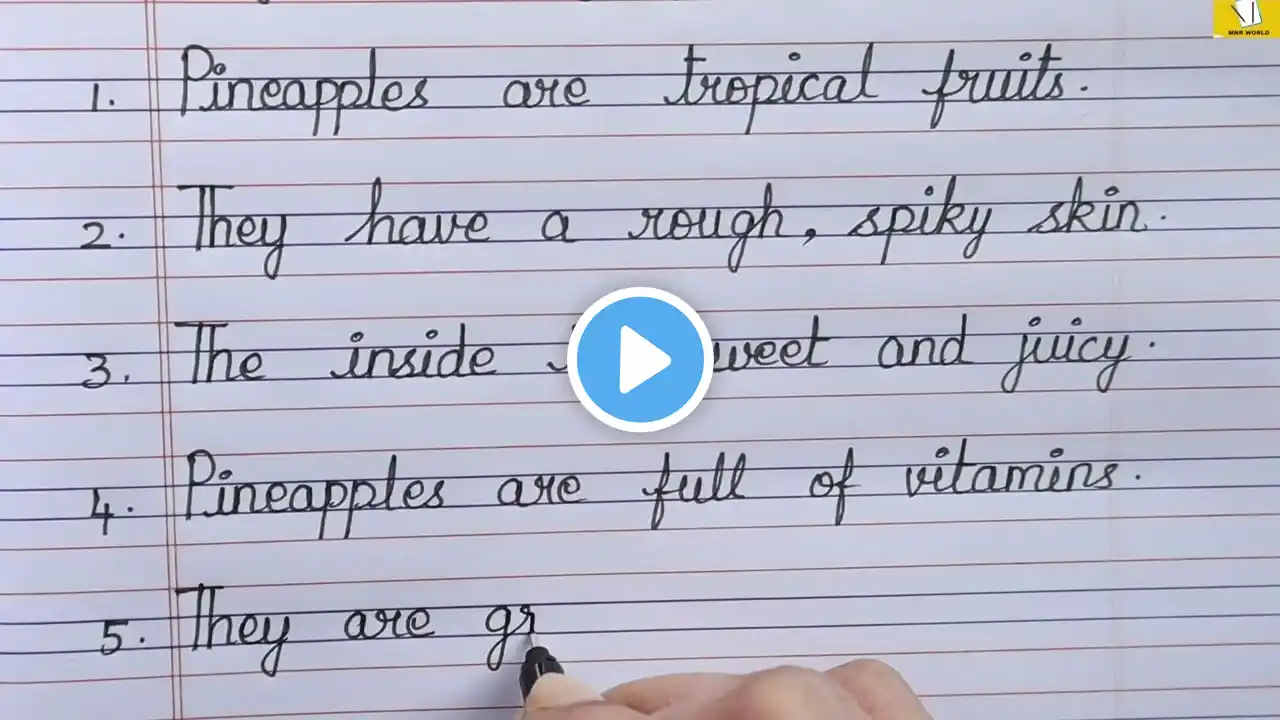 MNR WORLD
1. Pineapples are tropical fruits.
2. They have a rough, spiky skin.
3. The inside sweet and juicy.
4. Pineapples are full of vitamins.
5. They are gr